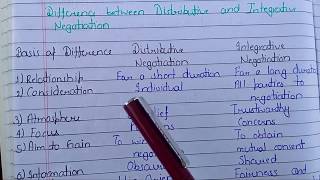 Difference between Distributive and Integrative
Negotiation
Basis of Difference Distributive Integrative
Negotiation Negotiation
1) Relationship For a short duration For a long
2) Consideration Individual All parties to
negotiation
3) Atmosphere Trustworthy
4) Focus Concerns
5) Aim to Gain To To obtain
mutual consent
6) Information Shared
Fairness and